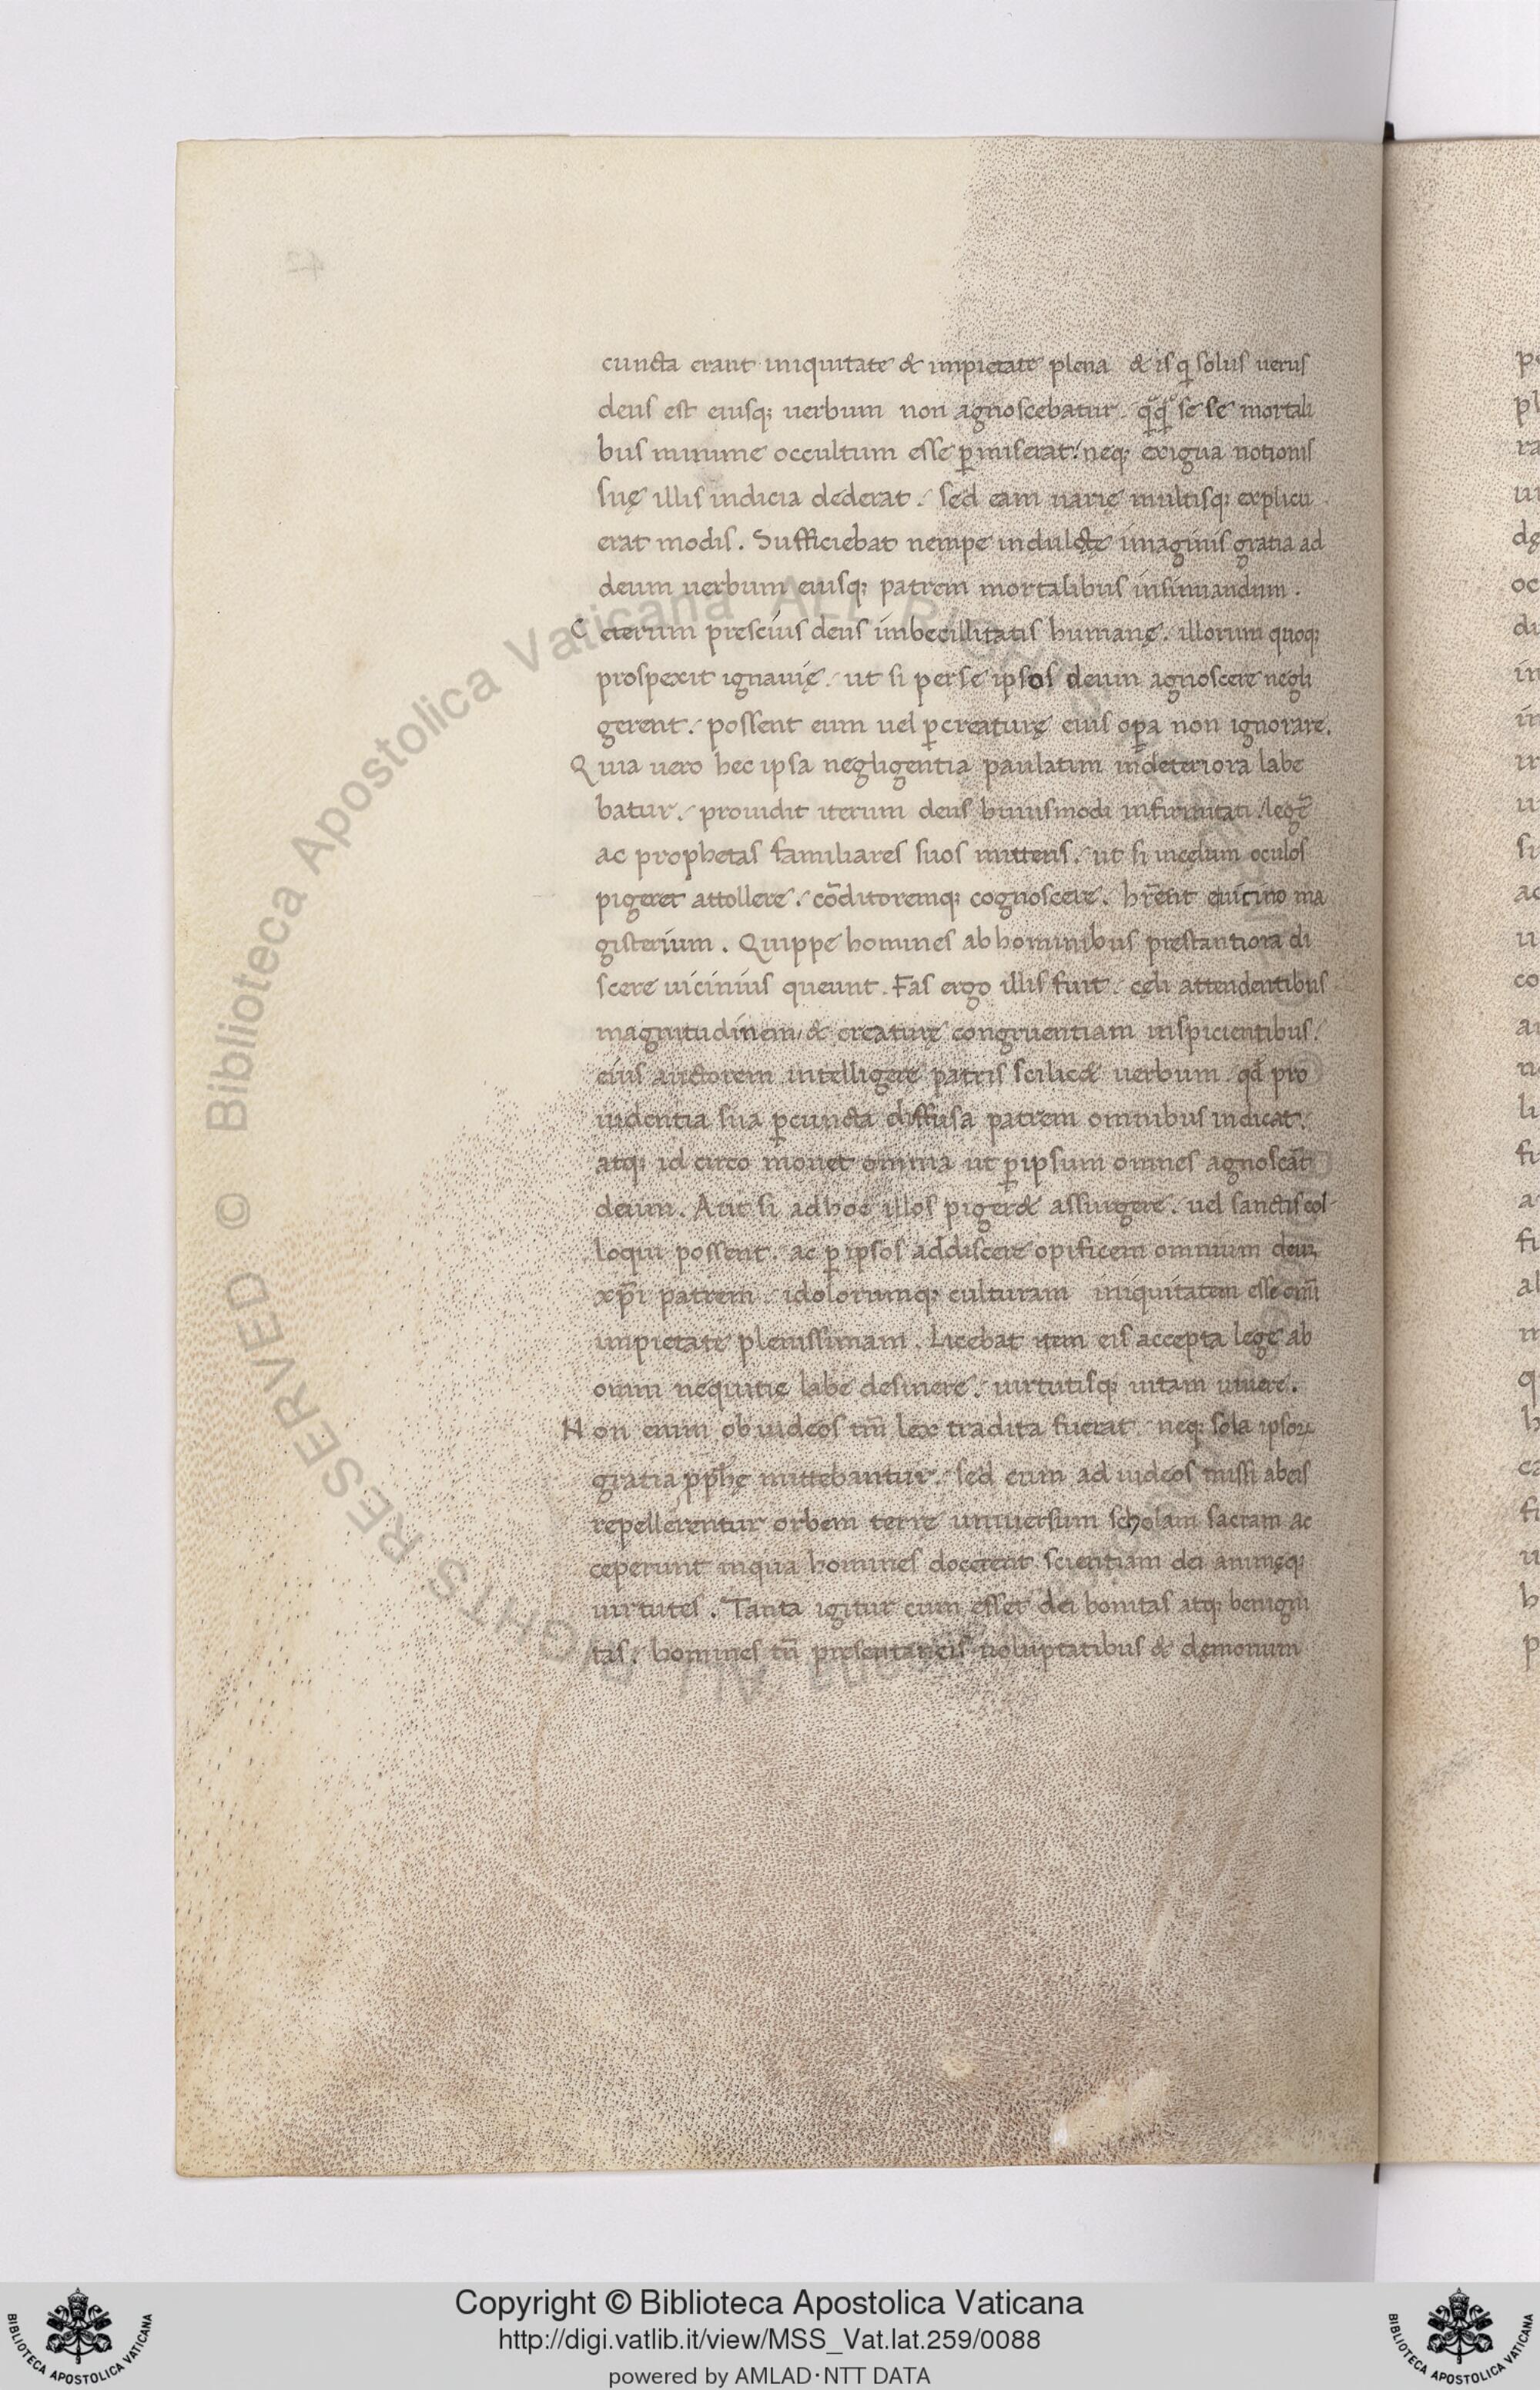 cuncta erant iniquitate & impietate plena & is q̣ solus uerus
deus est eiusq; uerbum non agnoscebatur. q̄q̄ se se mortali
bus minime occultum esse p̱miserat. neq; exigua notionis
suę illis indicia dederat. sed eam varię multisq; explicu
erat modis. Sufficiebat nempe indulctę imaginis gratia ad
deum uerbum eiusq; patrem mortalibus insinuandum.
Ceterum prescius deus imbecillitatis humanę. illorum quoq;
prospexit ignauię. ut si per se ipsos deum agnoscere negli
gerent. possent eum uel p̱ creaturę eius op̱a non ignorare.
Quia uero hec ipsa negligentia paulatim in deteriora labe
batur. prouidit iterum deus huiusmodi infirmitati. legē
ac prophetas familiares suos mittens. ut si in cęlum oculos
pigeret attollere. cōditoremq; cognoscere. hr̄ent e uicino ma
gisterium. Quippe homines ab hominibus prestantiora di
scere uicinius queunt. Fas ergo illis fuit. cęli attendentibus
magnitudinem, & creaturę congruentiam inspicientibus.
eius auctorem intelligere patris scilic& uerbum. qd̄ pro
uidentia sua p̱ cuncta diffusa patrem omnibus indicat.
atq; id circo mouet omnia ut p̱ ipsum omnes agnoscāt
deum. Aut si ad hoc illos piger& assurgere. uel sanctis col
loqui possent. ac p̱ ipsos addiscere opificem omnium deuȝ
xp̄i patrem. idolorumq; culturam iniquitatem esse om̄i
impietate plenissimam. Licebat item eis accepta lege ab
omni nequitię labe desinere. uirtutisq; uitam uiuere.
Non enim ob iudeos tm̄ lex tradita fuerat. neq; sola ipsoꝝ
gratia pp̄hę mittebantur. sed cum ad iudeos missi ab eis
repellerentur orbem terre uniuersum scholam sacram ac
ceperunt in qua homines docerent scientiam dei animęq;
uirtutes. Tanta igitur cum esset dei bonitas atq; benigni
tas. homines tn̄ presentaneis uoluptatibus & dęmonum
Copyright © Biblioteca Apostolica Vaticana
http://digi.vatlib.it/view/MSS_Vat.lat.259/0088
powered by AMLAD·NTT DATA